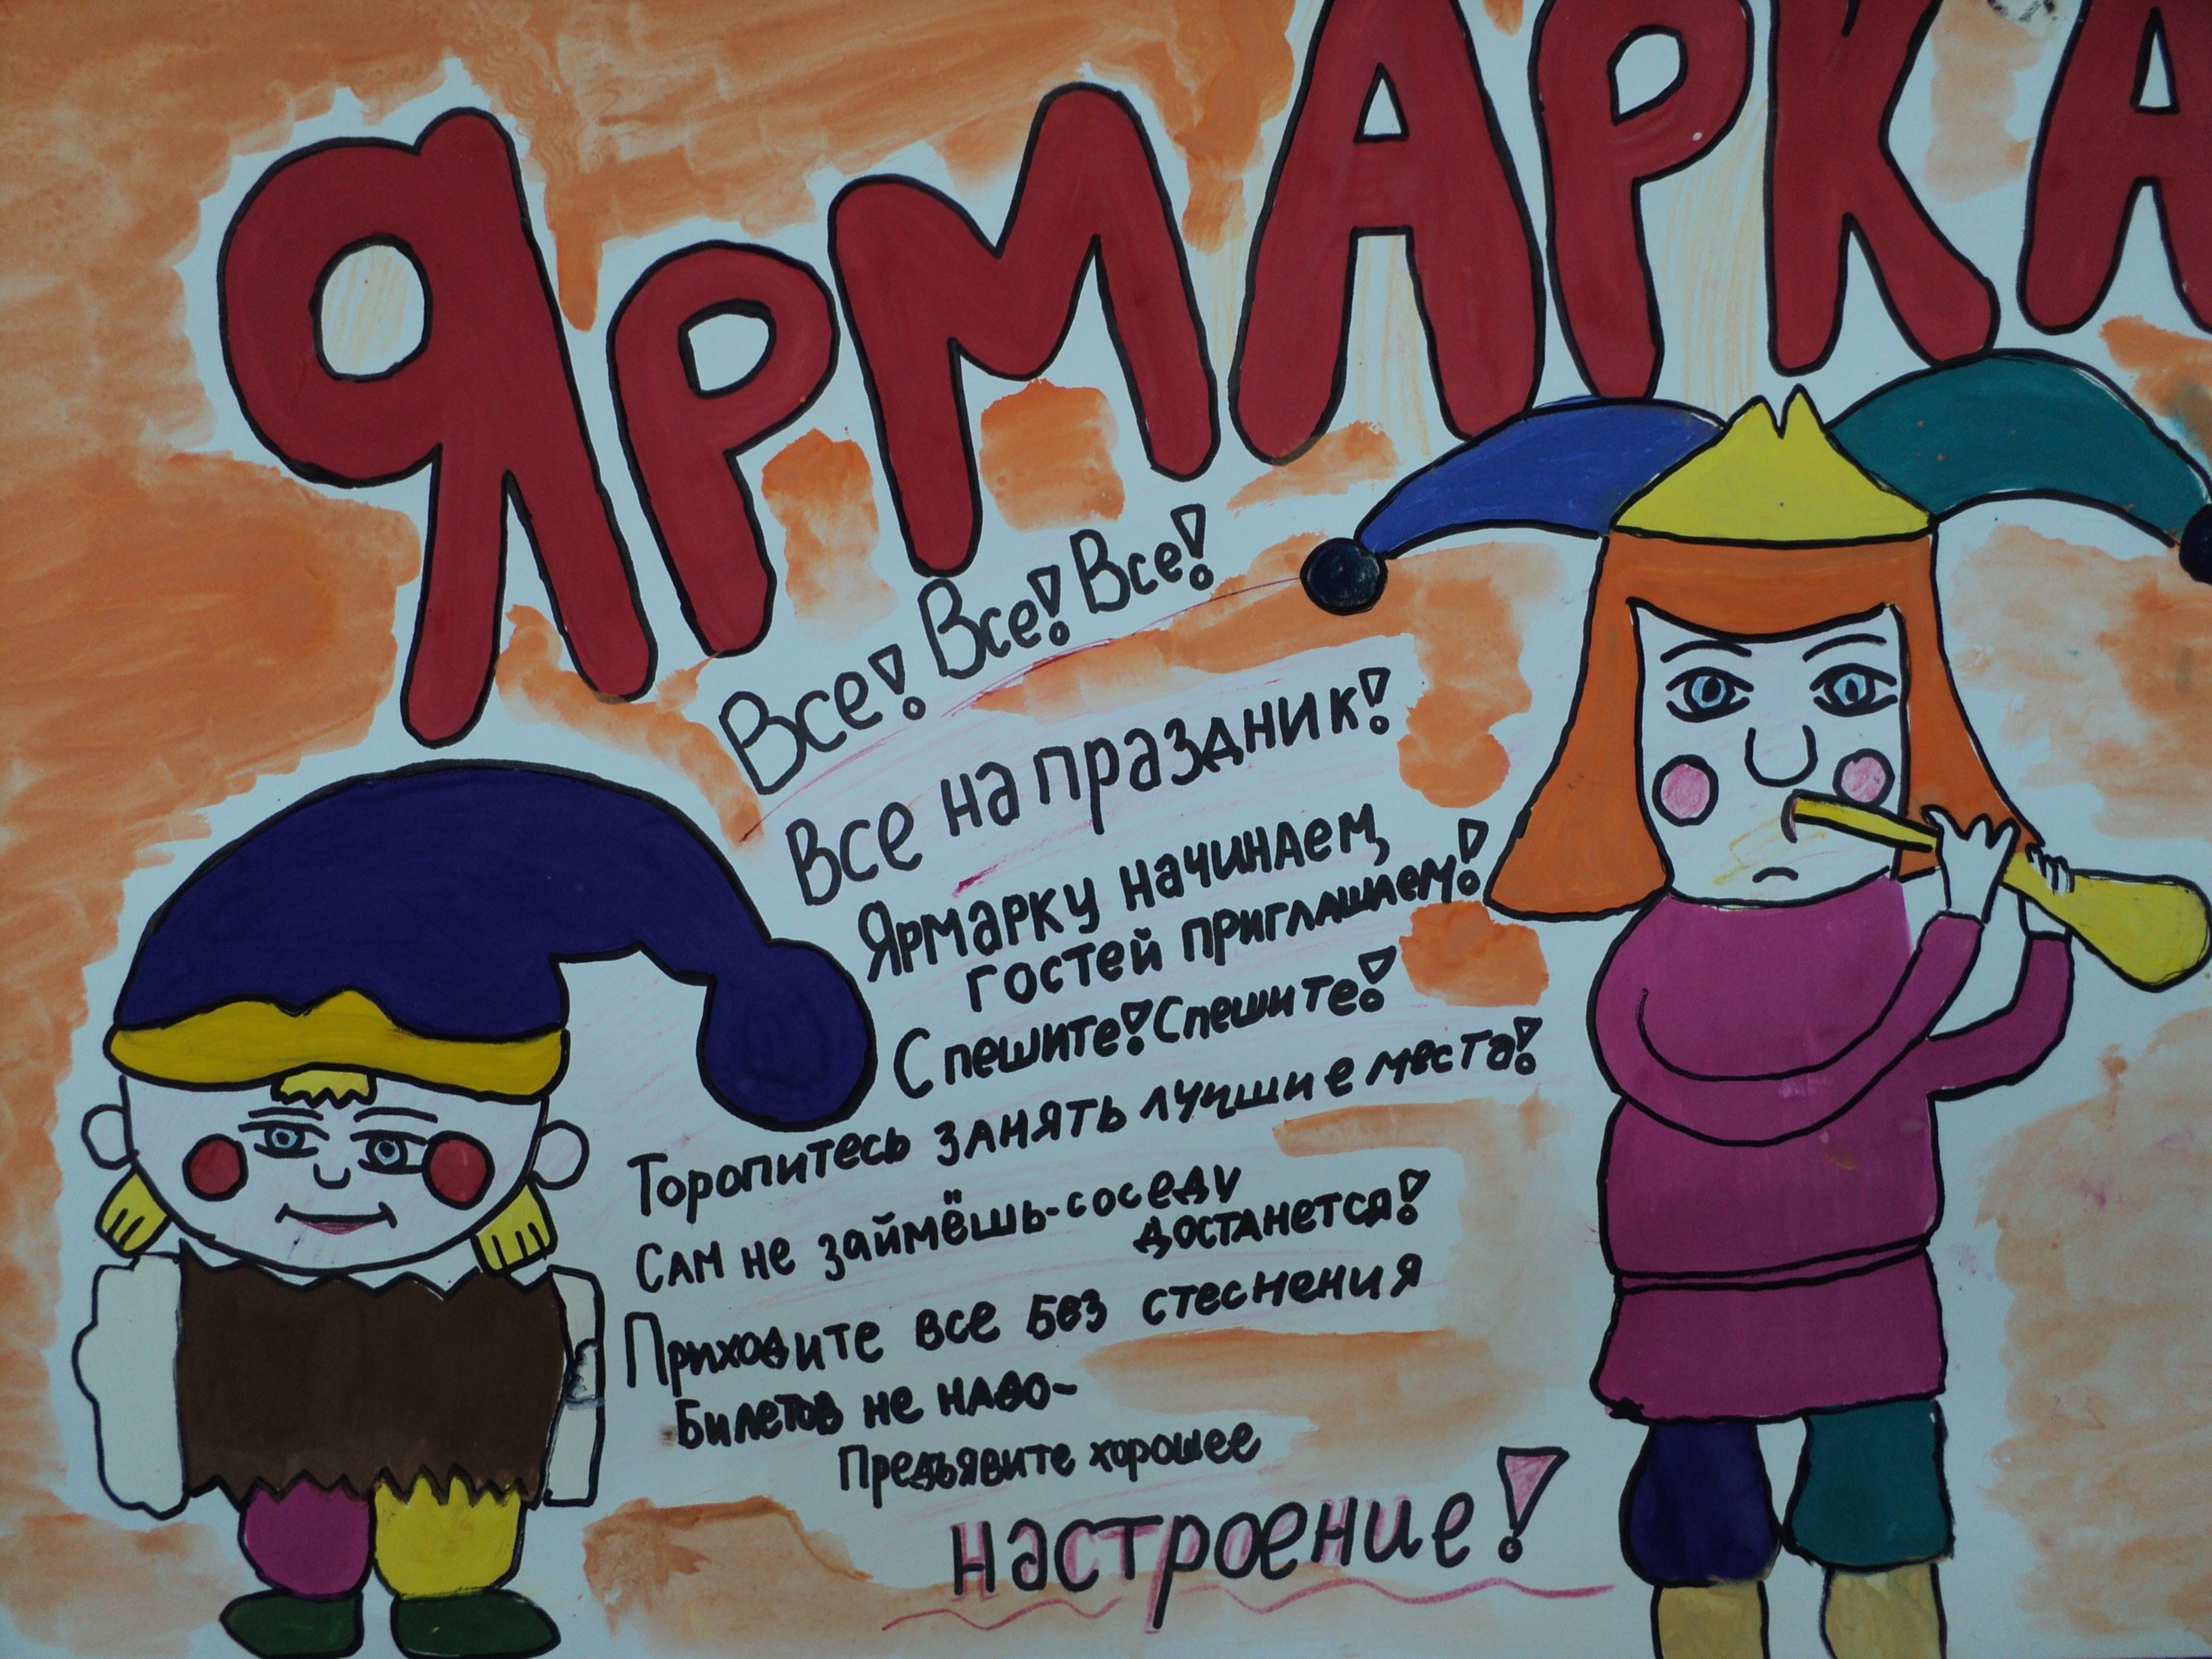 ЯРМАРКА
Все! Все! Все!
Все на праздник!
Ярмарку начинаем,
гостей приглашаем!
Спешите! Спешите!
Торопитесь занять лучшие места!
Сам не займёшь-соседу
достанется!
Приходите все без стеснения
Билетов не надо-
Предъявите хорошее
настроение!